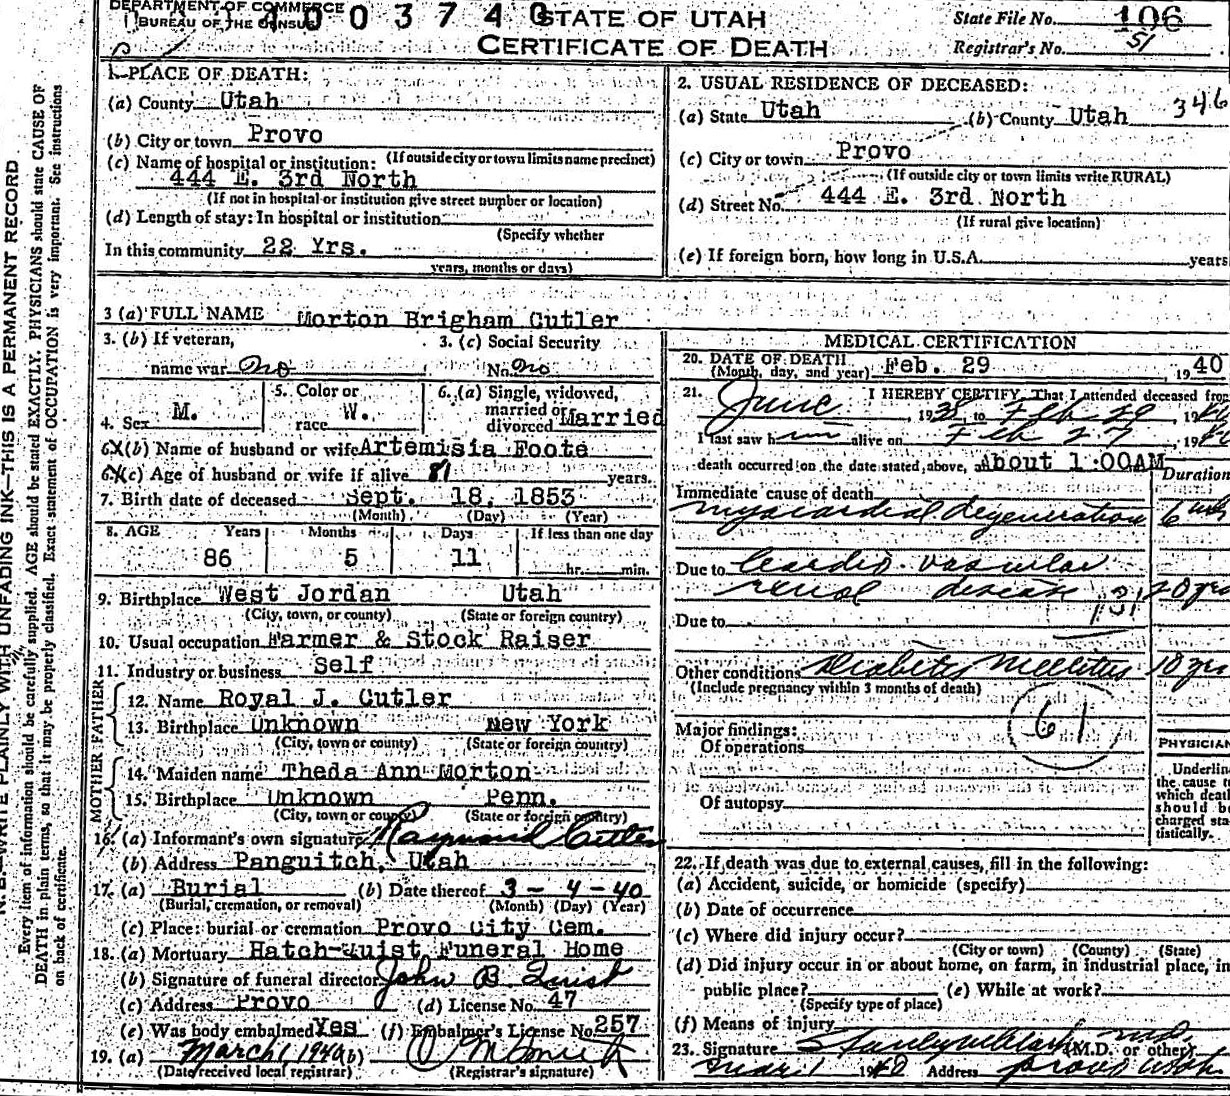 DEPARTMENT OF COMMERCE
BUREAU OF THE CENSUS
003740
STATE OF UTAH
CERTIFICATE OF DEATH
State File No. 106
Registrar's No. 51
1. PLACE OF DEATH:
(a) County Utah
(b) City or town Provo
(If outside city or town limits name precinct)
(c) Name of hospital or institution:
444 E. 3rd North
(If not in hospital or institution give street number or location)
(d) Length of stay: In hospital or institution
(Specify whether
In this community 22 Yrs.
years, months or days)
2. USUAL RESIDENCE OF DECEASED:
346
(a) State Utah (b) County Utah
(c) City or town Provo
(If outside city or town limits write RURAL)
(d) Street No. 444 E. 3rd North
(If rural give location)
(e) If foreign born, how long in U.S.A. years
3 (a) FULL NAME Morton Brigham Cutler
3. (b) If veteran, name war no
3. (c) Social Security No. no
4. Sex M.
5. Color or race W.
6. (a) Single, widowed, married or divorced Married
6. (b) Name of husband or wife Artemisia Foote
6. (c) Age of husband or wife if alive 81 years.
7. Birth date of deceased Sept. 18, 1853
(Month) (Day) (Year)
8. AGE Years Months Days If less than one day
86 5 11 hr. min.
9. Birthplace West Jordan Utah
(City, town, or county) (State or foreign country)
10. Usual occupation Farmer & Stock Raiser
11. Industry or business Self
FATHER
12. Name Royal J. Cutler
13. Birthplace Unknown New York
(City, town or county) (State or foreign country)
MOTHER
14. Maiden name Theda Ann Morton
15. Birthplace Unknown Penn.
(City, town or county) (State or foreign country)
16. (a) Informant's own signature Raymond Cutler
(b) Address Panguitch, Utah
17. (a) Burial (b) Date thereof 3-4-40
(Burial, cremation, or removal) (Month) (Day) (Year)
(c) Place: burial or cremation Provo City Cem.
18. (a) Mortuary Hatch-Quist Funeral Home
(b) Signature of funeral director John B Quist
(c) Address Provo (d) License No. 47
(e) Was body embalmed Yes (f) Embalmer's License No. 257
19. (a) March 1 1940 (b)
(Date received local registrar) (Registrar's signature)
MEDICAL CERTIFICATION
20. DATE OF DEATH Feb. 29 1940
(Month, day, and year)
21. I HEREBY CERTIFY, That I attended deceased from
June 1938 to Feb 29 1940
I last saw him alive on Feb 27 1940
death occurred on the date stated above, at About 1:00AM
Duration
Immediate cause of death
myocardial degeneration 6 wks
Due to Cardio-vascular
renal disease 20 yrs
131
Due to
Other conditions Diabetes Mellitus 10 yrs
(Include pregnancy within 3 months of death)
61
Major findings:
Of operations
Of autopsy
PHYSICIAN
Underline
the cause to
which death
should be
charged sta-
tistically.
22. If death was due to external causes, fill in the following:
(a) Accident, suicide, or homicide (specify)
(b) Date of occurrence
(c) Where did injury occur?
(City or town) (County) (State)
(d) Did injury occur in or about home, on farm, in industrial place, in
public place? (e) While at work?
(Specify type of place)
(f) Means of injury
23. Signature m.d. (M.D. or other)
Mar 1 1940 Address Provo Utah
N. B.—WRITE PLAINLY WITH UNFADING INK—THIS IS A PERMANENT RECORD
Every item of information should be carefully supplied. AGE should be stated EXACTLY. PHYSICIANS should state CAUSE OF
DEATH in plain terms, so that it may be properly classified. Exact statement of OCCUPATION is very important. See instructions
on back of certificate.